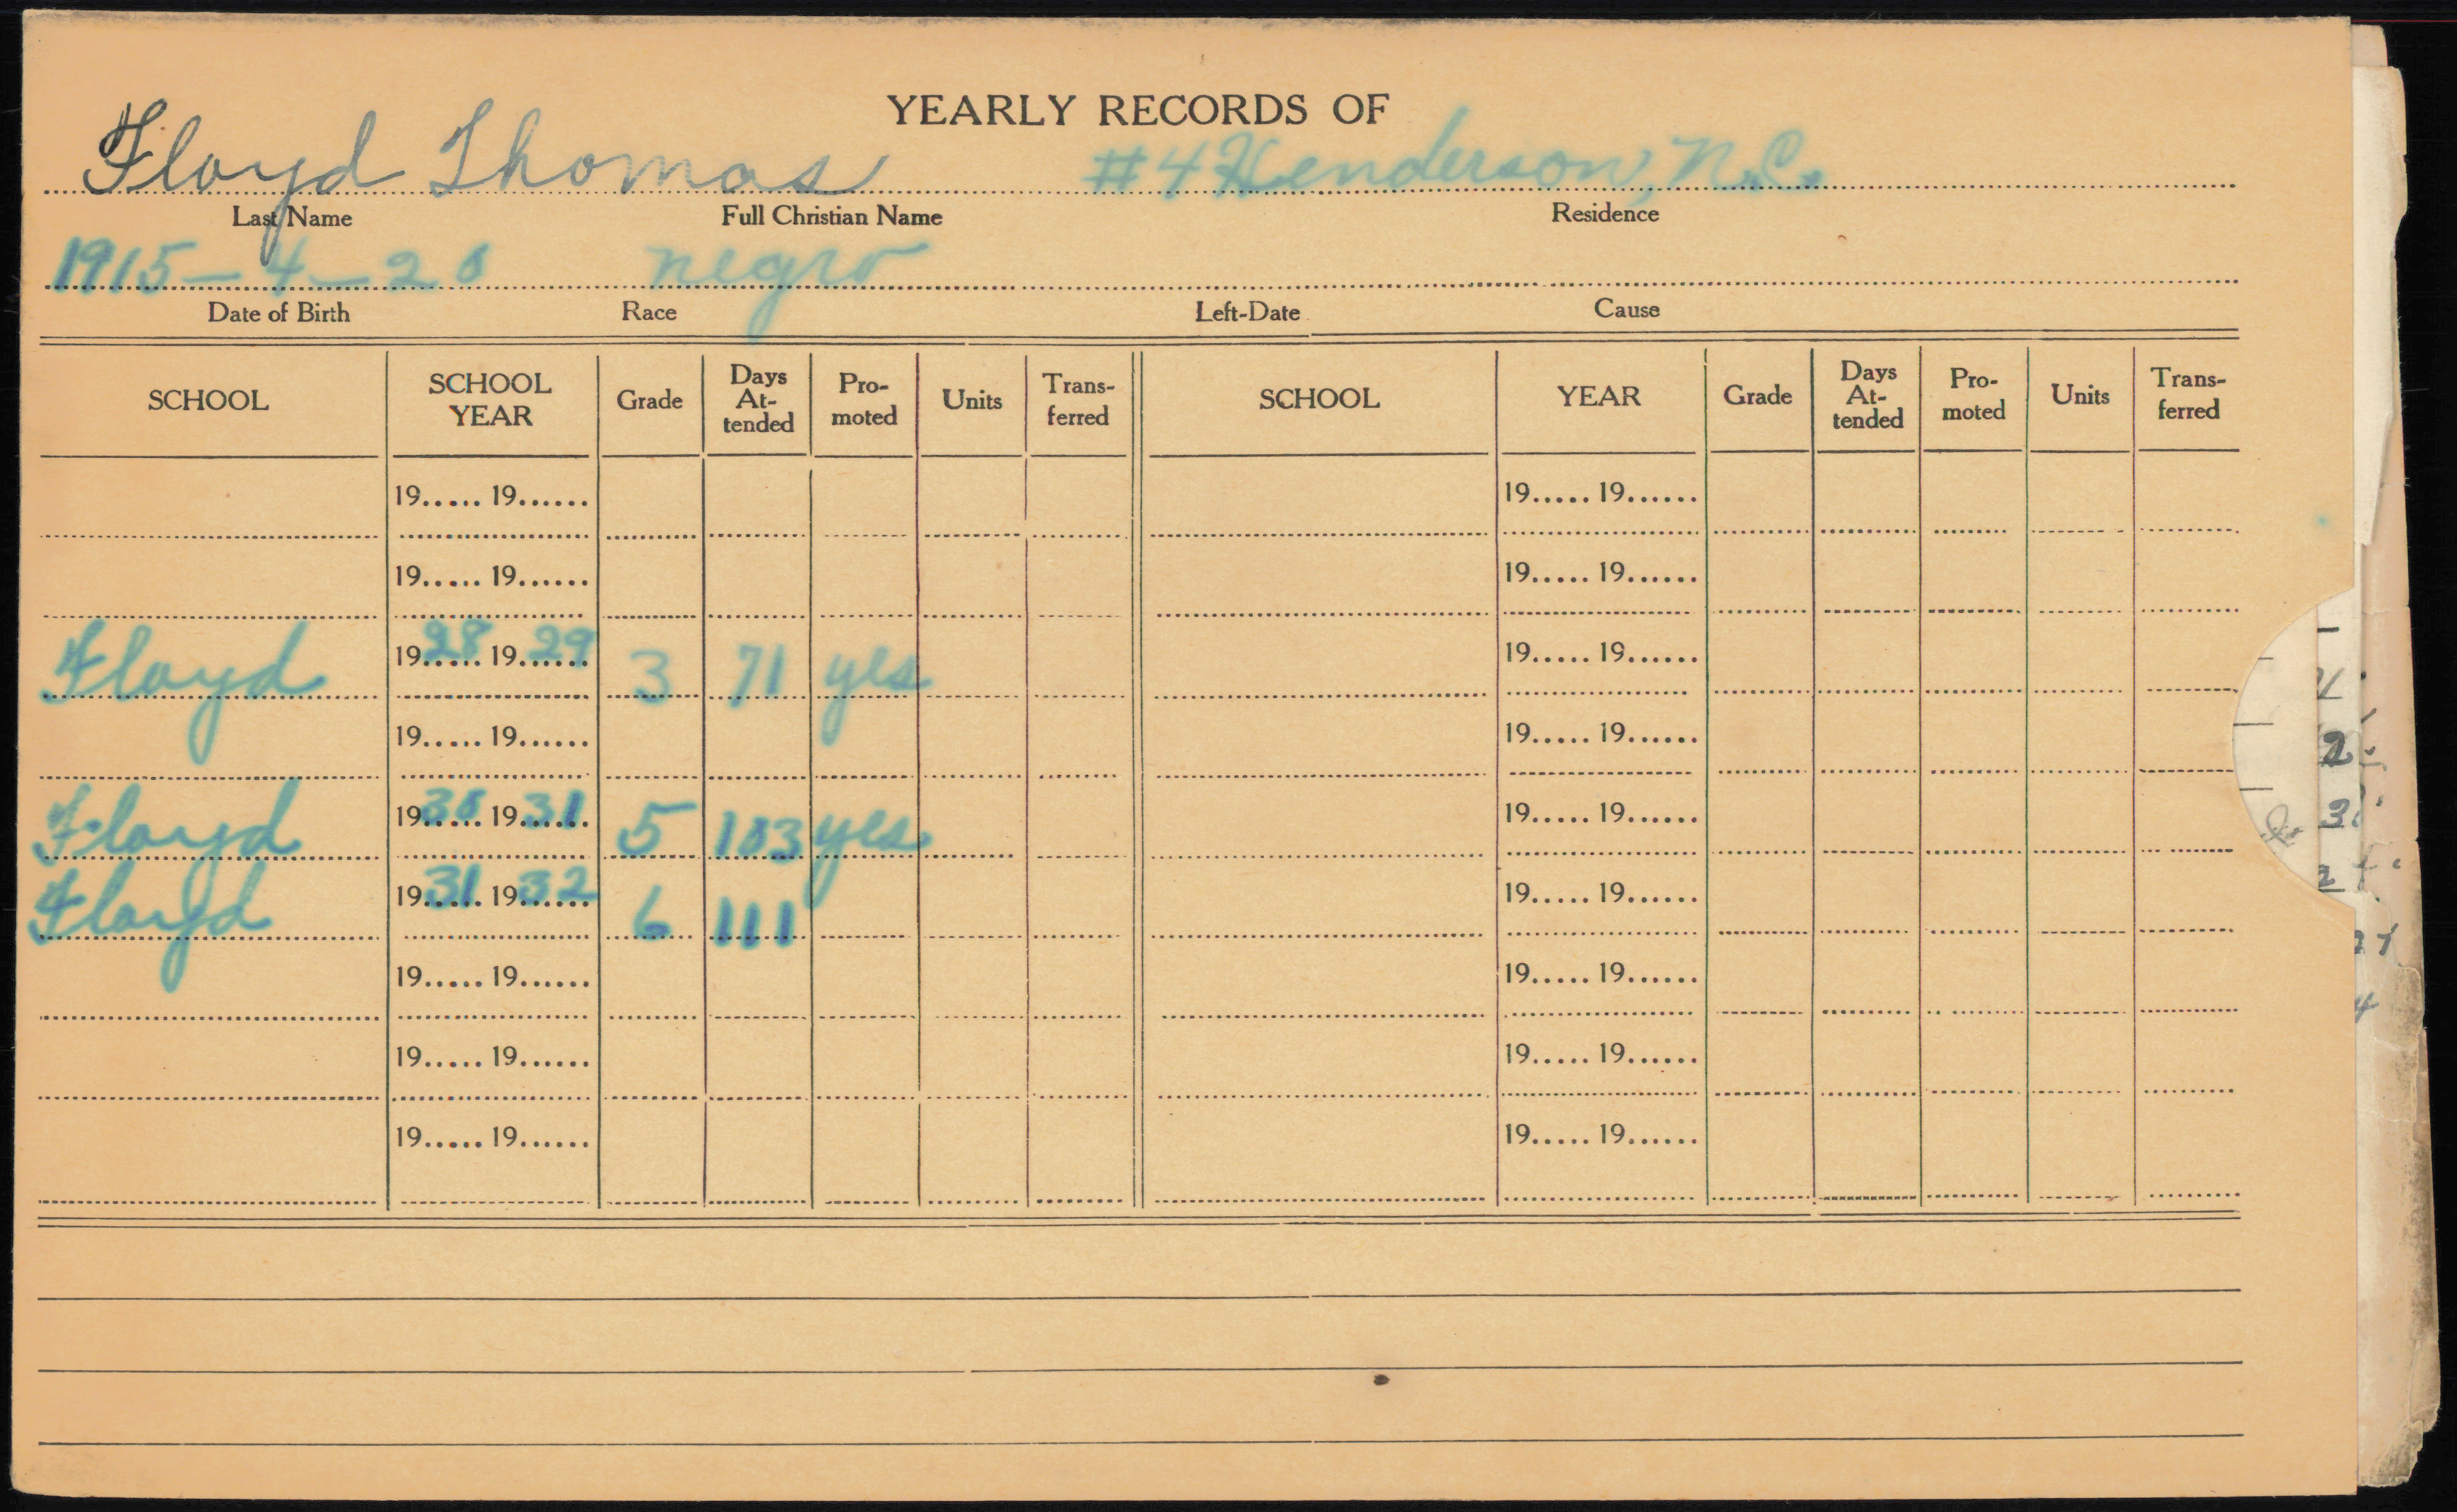 YEARLY RECORDS OF
Floyd Thomas #4 Henderson, N.C.
Last Name Full Christian Name Residence
1915-4-20 negro
Date of Birth Race Left-Date Cause
SCHOOL SCHOOL YEAR Grade Days At-tended Pro-moted Units Trans-ferred SCHOOL YEAR Grade Days At-tended Pro-moted Units Trans-ferred
19...... 19...... 19...... 19......
19...... 19...... 19...... 19......
Floyd 1928 1929 3 71 yes 19...... 19......
19...... 19...... 19...... 19......
Floyd 1930 1931 5 103 yes 19...... 19......
Floyd 1931 1932 6 111 19...... 19......
19...... 19...... 19...... 19......
19...... 19...... 19...... 19......
19...... 19...... 19...... 19......